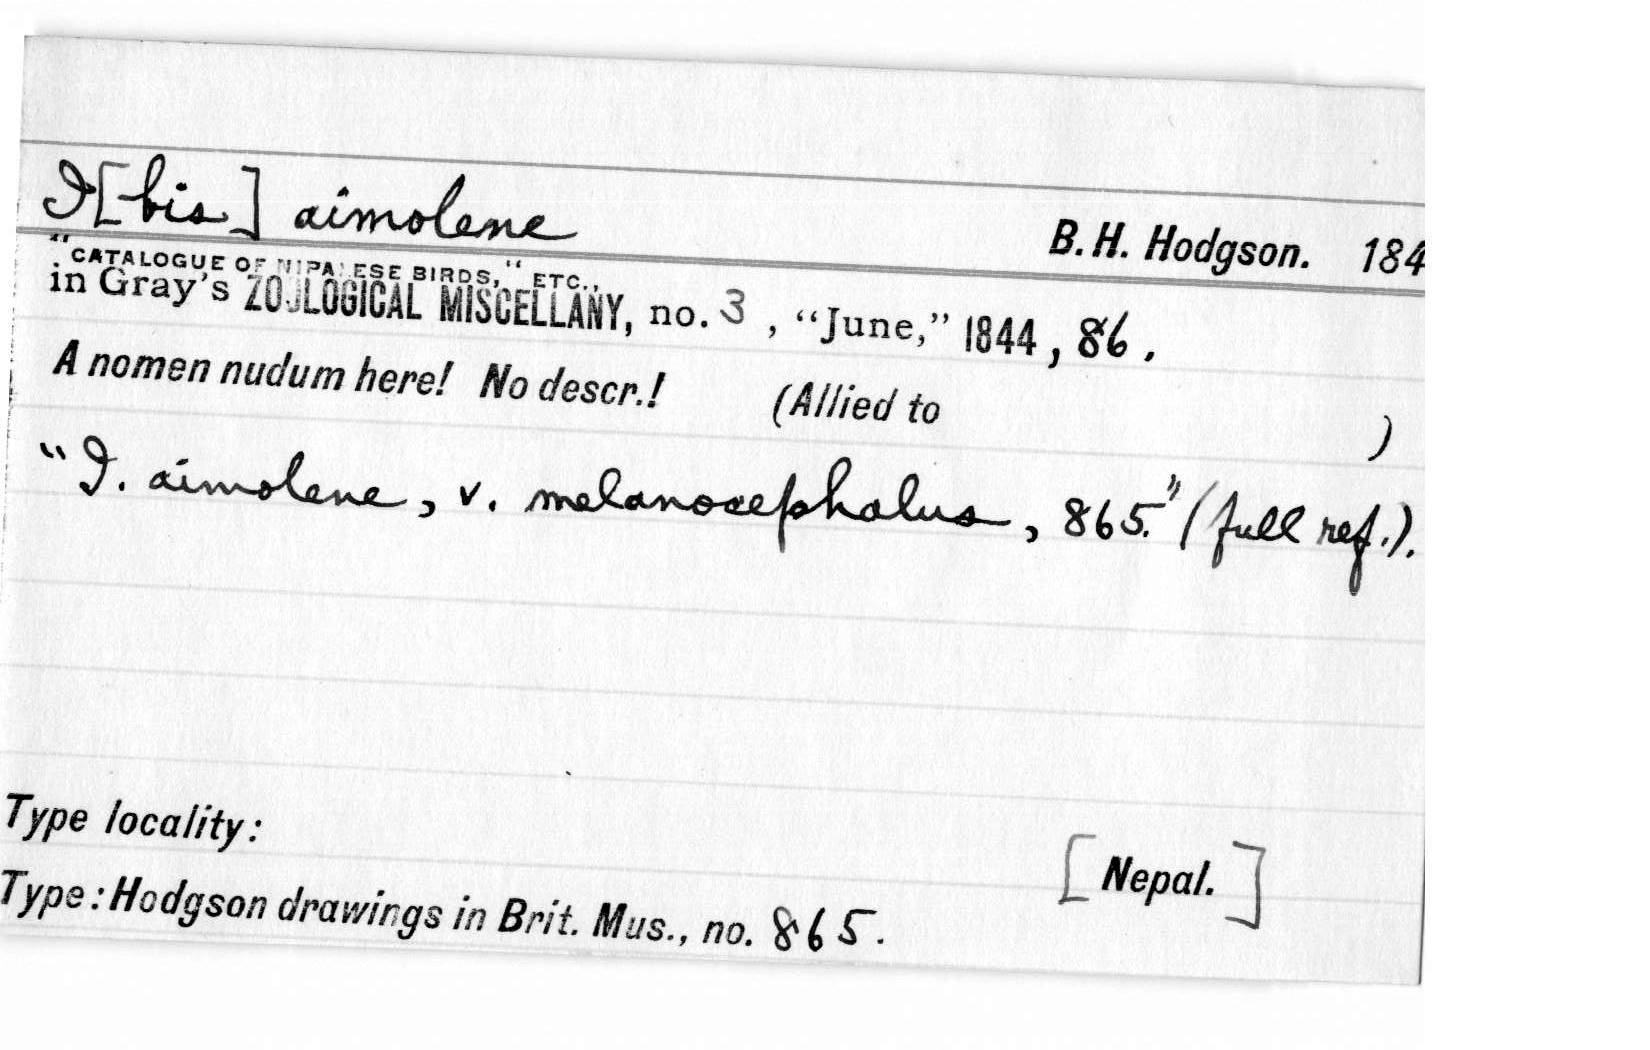 I[bis] aimolene
B. H. Hodgson. 184
"CATALOGUE OF NIPALESE BIRDS," ETC.,
in Gray's ZOOLOGICAL MISCELLANY, no. 3, "June," 1844, 86.
A nomen nudum here! No descr.! (Allied to )
"I. aimolene, v. melanocephalus, 865." (full ref.).
Type locality: [Nepal.]
Type: Hodgson drawings in Brit. Mus., no. 865.